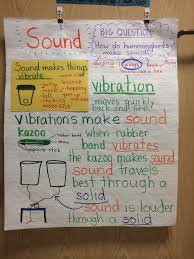 Sound
BIG QUESTION:
How do hummingbirds
make sounds?
wings
Sound makes things
vibrate
vibration
moves quickly
back and forth
Vibrations make sound
kazoo
when rubber
band vibrates
the kazoo makes sound
popsicle stick
sound travels
best through a
solid
sound is louder
through a solid